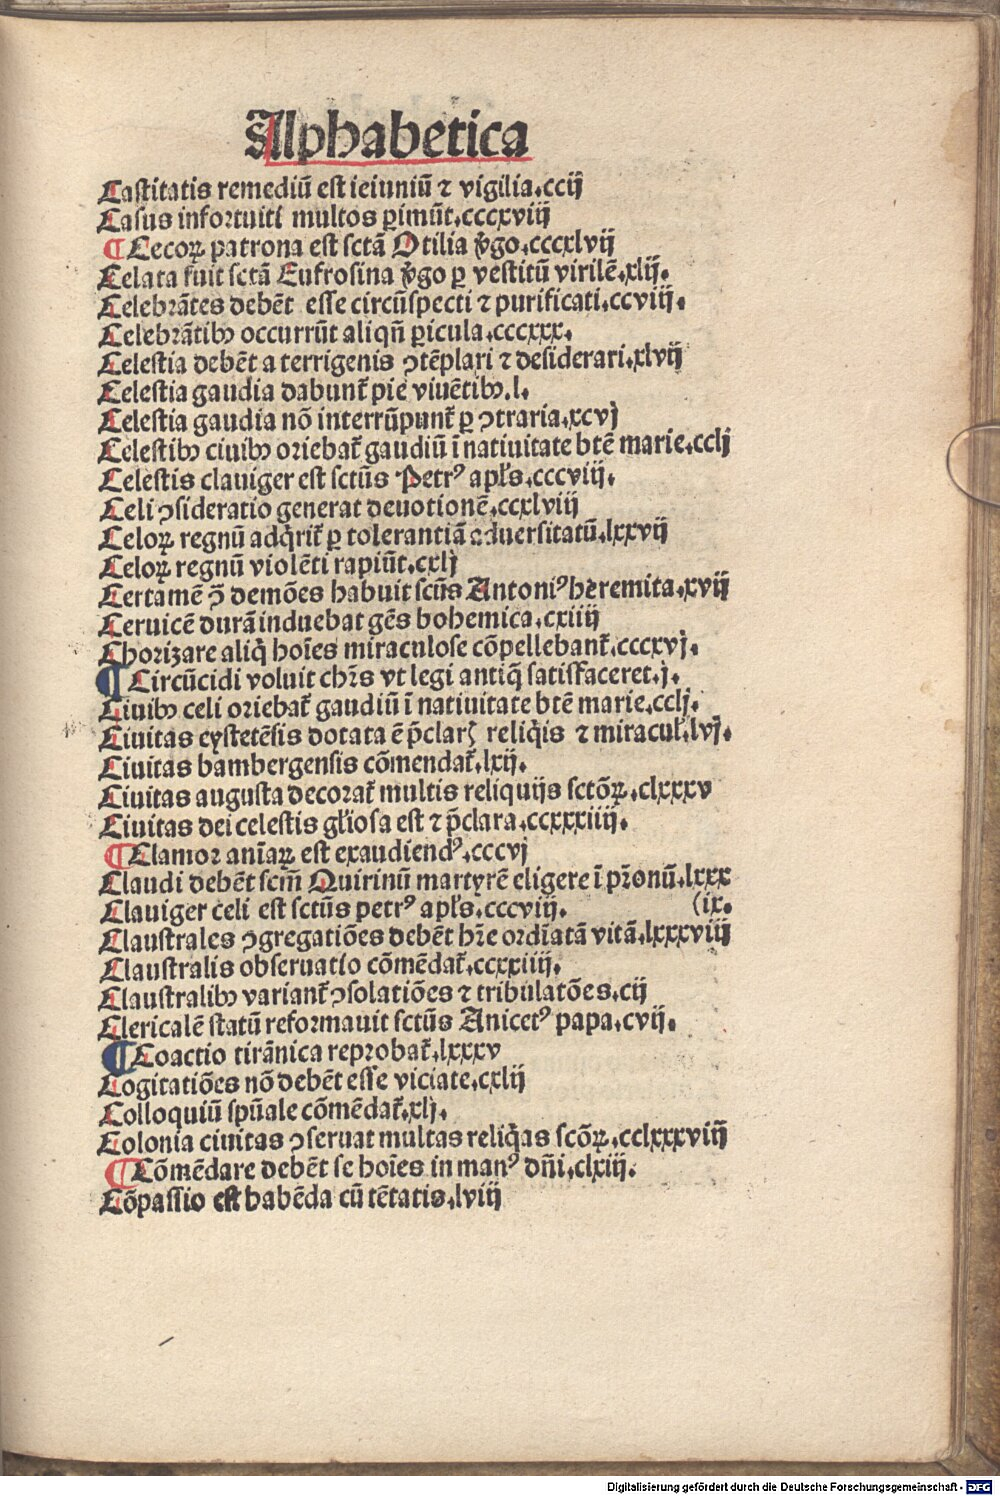 Alphabetica
Castitatis remediũ est ieiuniũ ⁊ vigilia.ccij
Casus infortuiti multos ꝑimũt.cccxviij
¶ Cecoꝝ patrona est sctã Otilia v̓go.cccxlvij
Celata fuit sctã Eufrosina v̓go ꝑ vestitũ virilẽ.xlij.
Celebrãtes debẽt esse circũspecti ⁊ purificati.ccviij.
Celebrãtibꝰ occurrũt aliqñ ꝑicula.cccxxx.
Celestia debẽt a terrigenis ꝯtẽplari ⁊ desiderari.xlvij
Celestia gaudia dabunt̃ pie viuẽtibꝰ.l.
Celestia gaudia nõ interrũpunt̃ ꝑ ꝯtraria.xcvj
Celestibꝰ ciuibꝰ oriebat̃ gaudiũ ĩ natiuitate btẽ marie.cclj
Celestis clauiger est sctũs Petrꝰ apl̃s.cccviij.
Celi ꝯsideratio generat deuotionẽ.ccxlviij
Celoꝝ regnũ adq̃rit̃ ꝑ tolerantiã aduersitatũ.lxxvij
Celoꝝ regnũ violẽti rapiũt.cxlj
Certamẽ ꝯ̃ demões habuit scũs Antoniꝰ heremita.xvij
Ceruicẽ durã induebat gẽs bohemica.cxiiij
Chorizare aliq̃ hoĩes miraculose cõpellebant̃.cccxvj.
¶ Circũcidi voluit chr̃s vt legi antiq̃ satisfaceret.j.
Ciuibꝰ celi oriebat̃ gaudiũ ĩ natiuitate btẽ marie.cclj.
Ciuitas eystetẽsis dotata ẽ p̃clarꝭ reliq̃is ⁊ miracul̃.lvj.
Ciuitas bambergensis cõmendat̃.lxij.
Ciuitas augusta decorat̃ multis reliquijs sctõꝝ.clxxxv
Ciuitas dei celestis gl̃iosa est ⁊ p̃clara.ccxxxiiij.
¶ Clamor aniãꝝ est exaudiendꝰ.cccvj
Claudi debẽt scm̃ Quirinũ martyrẽ eligere ĩ pr̃onũ.lxxx
Clauiger celi est sctũs petrꝰ apl̃s.cccviij. (ix.
Claustrales ꝯgregatiões debẽt hr̃e ordĩatã vitã.lxxxviij
Claustralis obseruatio cõmẽdat̃.ccxxiiij.
Claustralibꝰ variant̃ ꝯsolatiões ⁊ tribulatões.cij
Clericalẽ statũ reformauit sctũs Anicetꝰ papa.cvij.
¶ Coactio tirãnica reprobat̃.lxxxv
Cogitatiões nõ debẽt esse viciate.cxlij
Colloquiũ spũale cõmẽdat̃.xlj.
Colonia ciuitas ꝯseruat multas reliq̃as scõꝝ.cclxxxviij
¶ Cõmẽdare debẽt se hoĩes in manꝰ dñi.clxiij.
Cõpassio est habẽda cũ tẽtatis.lviij
Digitalisierung gefördert durch die Deutsche Forschungsgemeinschaft - DFG